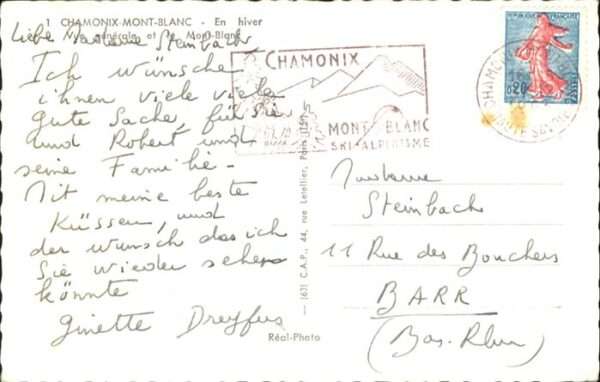 1 CHAMONIX-MONT-BLANC - En hiver
Vue générale et le Mont-Blanc
Liebe Madame Steinbach
Ich wünsche
ihnen viele viele
gute Sache, für Sie
und Robert und
seine Familie -
Mit meine beste
Küssen, und
der wunsch das ich
Sie wieder sehen
könnte
Ginette Dreyfus
CHAMONIX
MONT-BLANC
SKI-ALPINISME
0,20
(63) C.A.P., 44, rue Letellier, Paris (15e)
Réal-Photo
Madame
Steinbach
11 Rue des Bouchers
BARR
(Bas-Rhin)